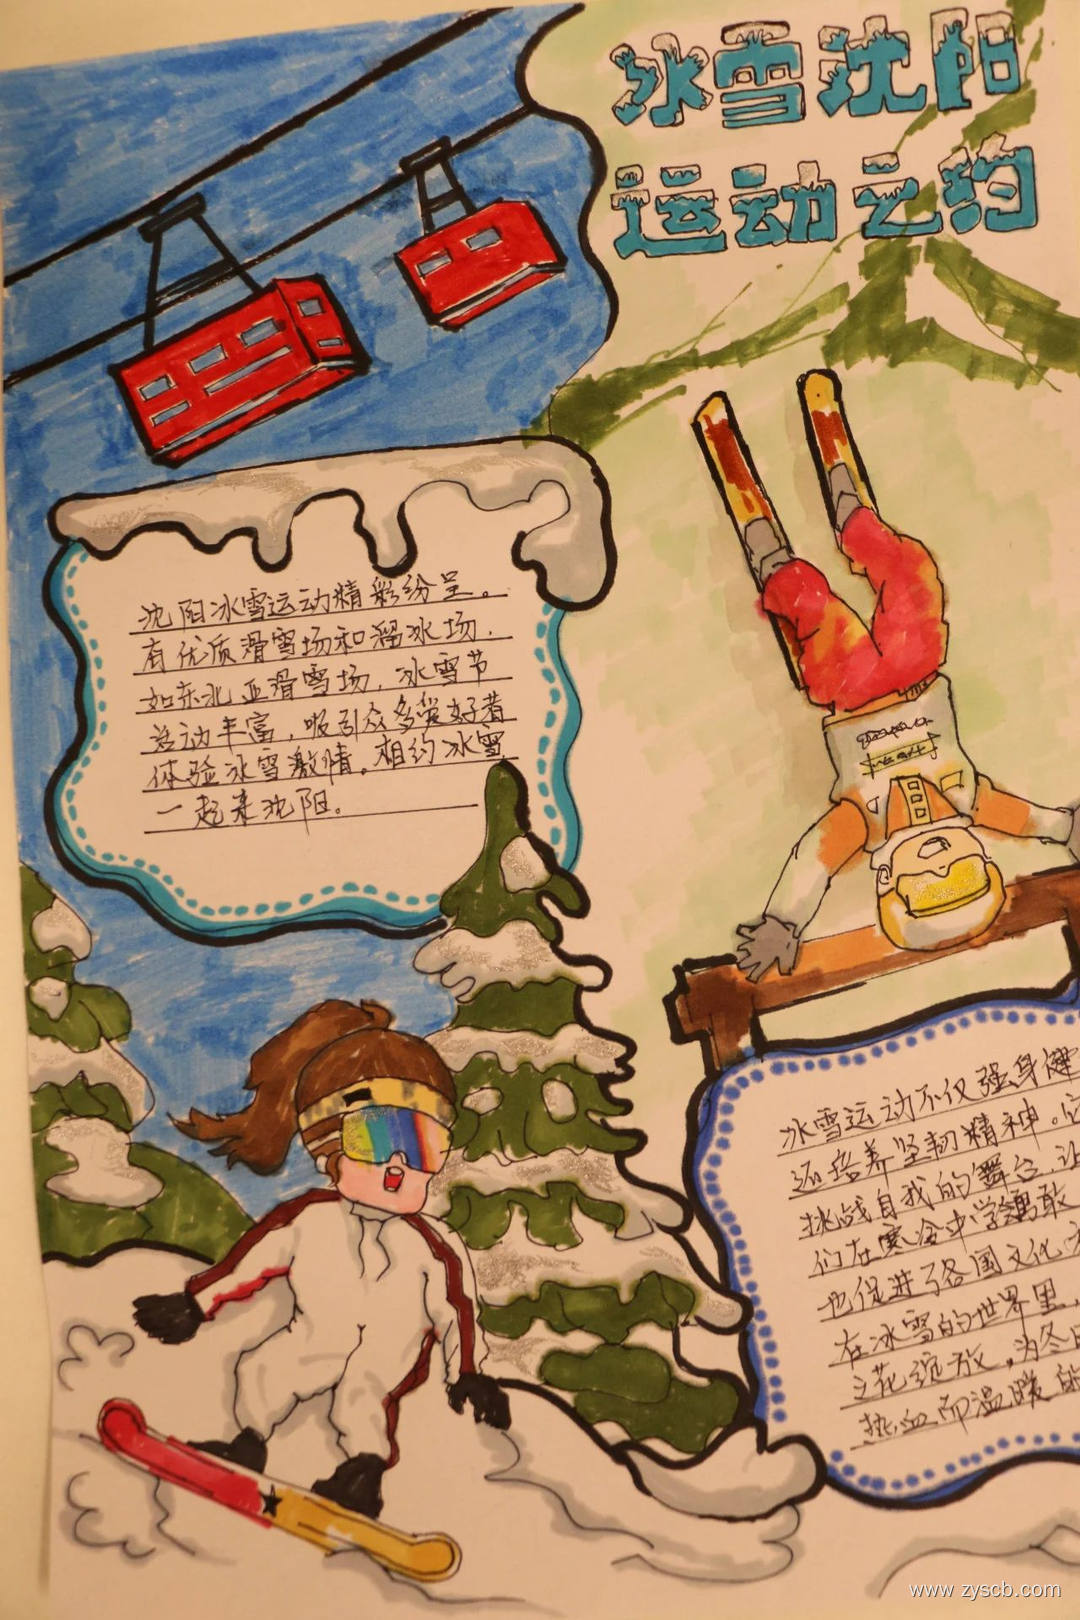 冰雪沈阳
运动之约
沈阳冰雪运动精彩纷呈。
有优质滑雪场和溜冰场，
如东北亚滑雪场，冰雪节
活动丰富，吸引众多爱好者
体验冰雪激情。相约冰雪
一起来沈阳。
冰雪运动不仅强身健
还培养坚韧精神。它
挑战自我的舞台，让
们在寒冷中学勇敢
也促进了各国文化
在冰雪的世界里，
之花绽放，为冬日
热血而温暖的
www.zyscb.com